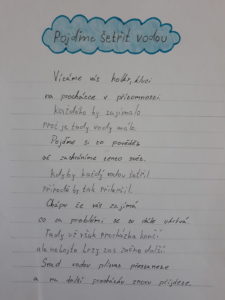 Pojďme šetřit vodou
Vítáme vás holky, kluci
na procházce v přítomnosti.
Každého by zajímalo
proč je tady vody málo.
Pojďme si to povědět
ať zachráníme tento svět.
Kdyby každý vodou šetřil
přírodě by tak prospěl.
Chápu že vás zajímá
co za problémy se to dále ukrývá.
Tady už však procházka končí
ale nebojte brzy zas začne další
Snad vodou plýtvat přestanete
a na další procházku znovu přijdete.